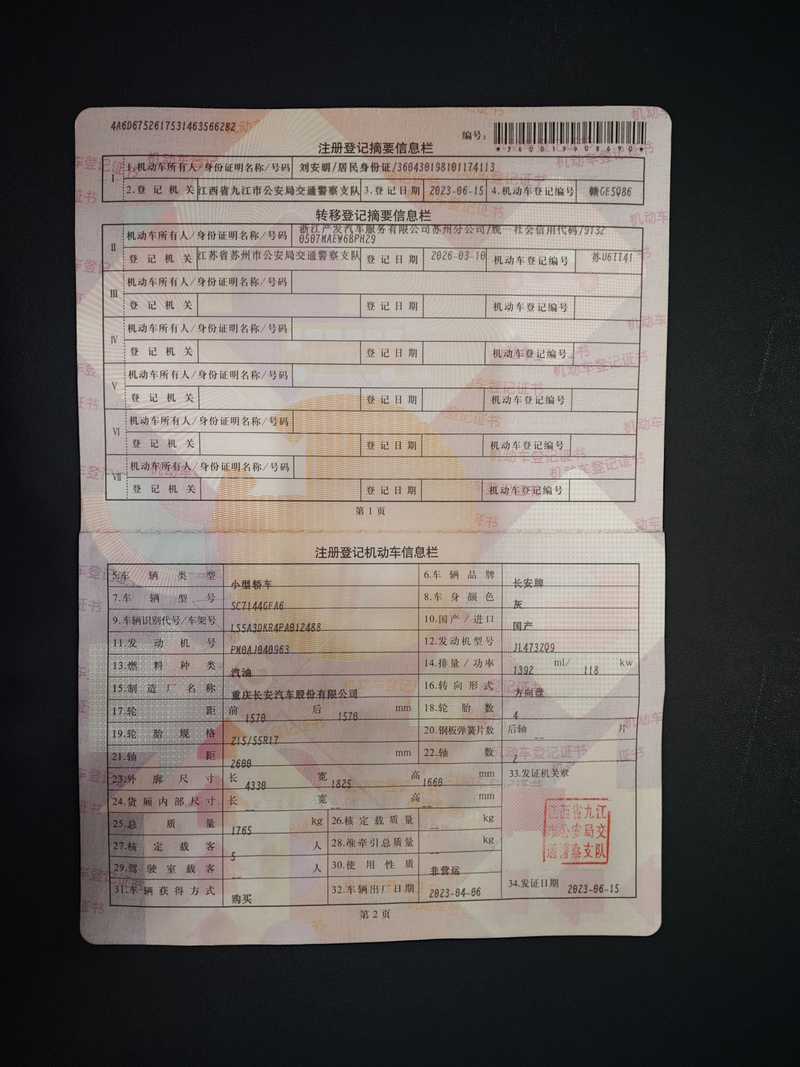 4A6D6752617531463566282
编号:
注册登记摘要信息栏
I 1.机动车所有人/身份证明名称/号码 刘安娟/居民身份证/360430198101174113
2.登记机关 江西省九江市公安局交通警察支队 3.登记日期 2023-06-15 4.机动车登记编号 赣GE5Q86
转移登记摘要信息栏
II 机动车所有人/身份证明名称/号码 浙江产发汽车服务有限公司苏州分公司/统一社会信用代码/9132
0507MAEW6BPH29
登记机关 江苏省苏州市公安局交通警察支队 登记日期 2026-03-10 机动车登记编号 苏U6II41
III 机动车所有人/身份证明名称/号码
登记机关 登记日期 机动车登记编号
IV 机动车所有人/身份证明名称/号码
登记机关 登记日期 机动车登记编号
V 机动车所有人/身份证明名称/号码
登记机关 登记日期 机动车登记编号
VI 机动车所有人/身份证明名称/号码
登记机关 登记日期 机动车登记编号
VII 机动车所有人/身份证明名称/号码
登记机关 登记日期 机动车登记编号
第1页
注册登记机动车信息栏
5.车辆类型 小型轿车 6.车辆品牌 长安牌
7.车辆型号 SC7144GFA6 8.车身颜色 灰
9.车辆识别代号/车架号 LS5A3DKR4PA012488 10.国产/进口 国产
11.发动机号 PM0AJ040963 12.发动机型号 JL473ZQ9
13.燃料种类 汽油 14.排量/功率 1392 ml/ 118 kw
15.制造厂名称 重庆长安汽车股份有限公司 16.转向形式 方向盘
17.轮距 前 1570 后 1570 mm 18.轮胎数 4
19.轮胎规格 215/55R17 20.钢板弹簧片数 后轴 -- 片
21.轴距 2600 mm 22.轴数 2
23.外廓尺寸 长 4330 宽 1825 高 1660 mm 33.发证机关章
24.货厢内部尺寸 长 -- 宽 -- 高 -- mm
25.总质量 1765 kg 26.核定载质量 -- kg
27.核定载客 5 人 28.准牵引总质量 -- kg
29.驾驶室载客 -- 人 30.使用性质 非营运
31.车辆获得方式 购买 32.车辆出厂日期 2023-04-06 34.发证日期 2023-06-15
江西省九江
市公安局交
通警察支队
第2页